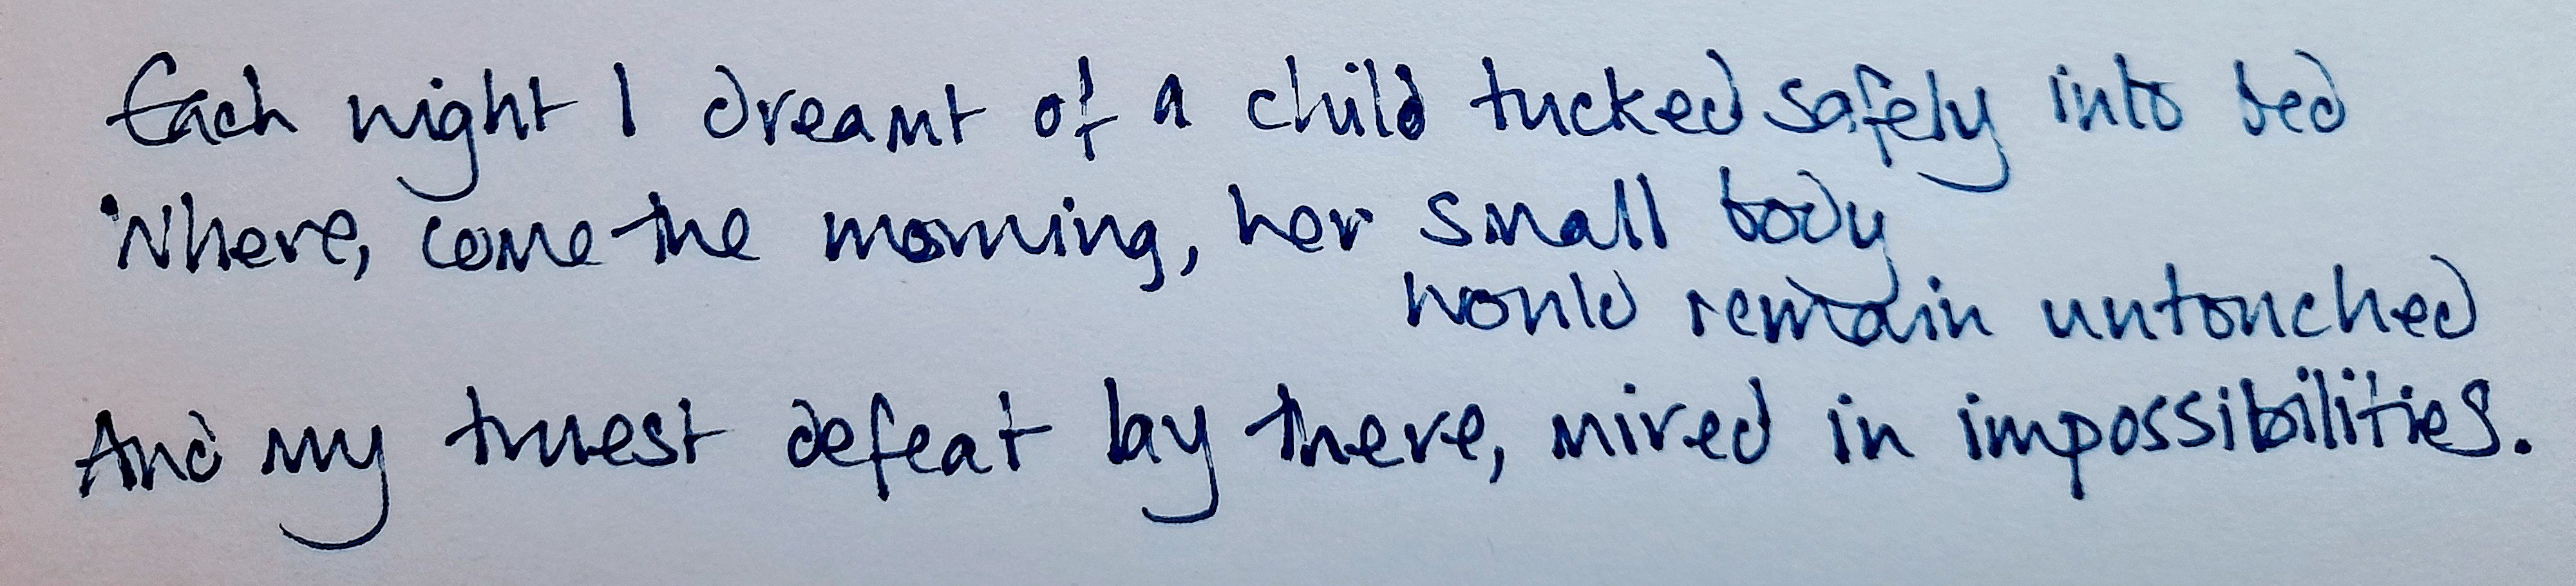 Each night I dreamt of a child tucked safely into bed
Where, come the morning, her small body
would remain untouched
And my truest defeat lay there, mired in impossibilities.